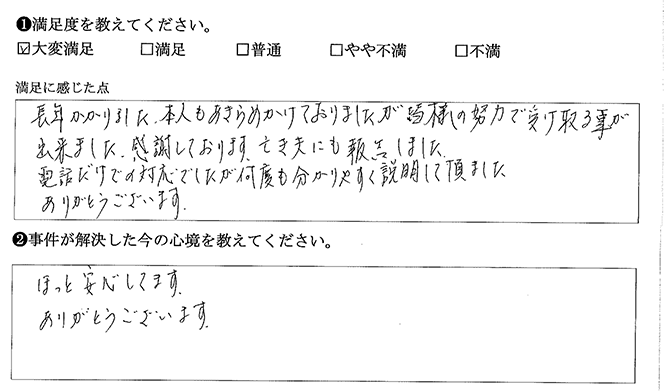 ❶満足度を教えてください。
☑大変満足 □満足 □普通 □やや不満 □不満
満足に感じた点
長年かかりました、本人もあきらめかけておりましたが皆様の努力で受け取る事が
出来ました、感謝しております。亡き夫にも報告しました
電話だけでの対応でしたが何度も分かりやすく説明して頂ました
ありがとうございます。
❷事件が解決した今の心境を教えてください。
ほっと安心してます。
ありがとうございます。